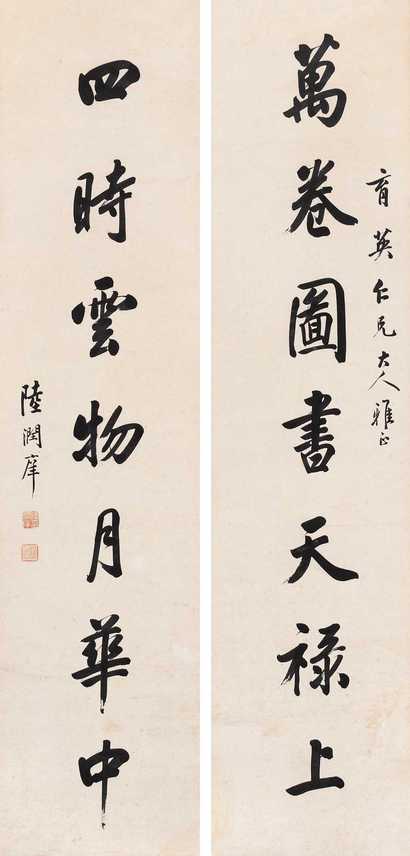 育英仁兄大人雅正
萬卷圖書天禄上
四時雲物月華中
陸潤庠